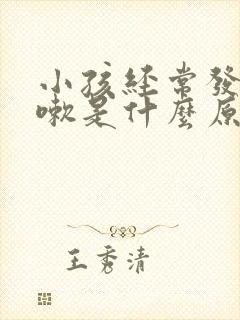 小孩經常發
嗽是什麼原
王秀清